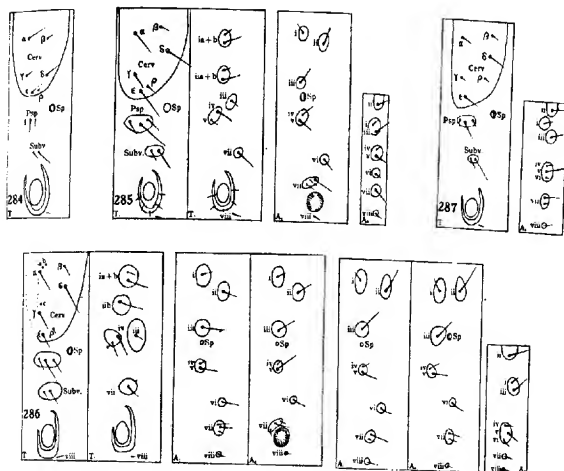 α β
Cerv
γ δ
ε ρ
Sp
Psp
Subv
284
T.
α β
δ
Cerv
γ ρ
ε
Psp Sp
Subv.
285
T.
ia+b
iia+b
iii
iv
v
vii
viii
T.
i ii
iii
Sp
iv
v
vi
vii
viii
ii
i
iii
iv
v
vi
vii
viii
β
α
δ
Cerv
γ ρ
ε
Psp Sp
Subv.
287
T.
ii
i
iii
iv
v
vi
vii
viii
β
α
δ
γ Cerv
Sp
Subv.
286
T. viii
ia+b
iib
iv iii
v
vii
T. viii
i
ii
iii
Sp
iv
v
vi
vii
viii
i
ii
iii
Sp
iv
v
vi
vii
viii
i ii
iii
Sp
iv
v
vi
vii
viii
i ii
iii
Sp
iv
v
vi
vii
viii
iii
iv
v
vi
vii
viii